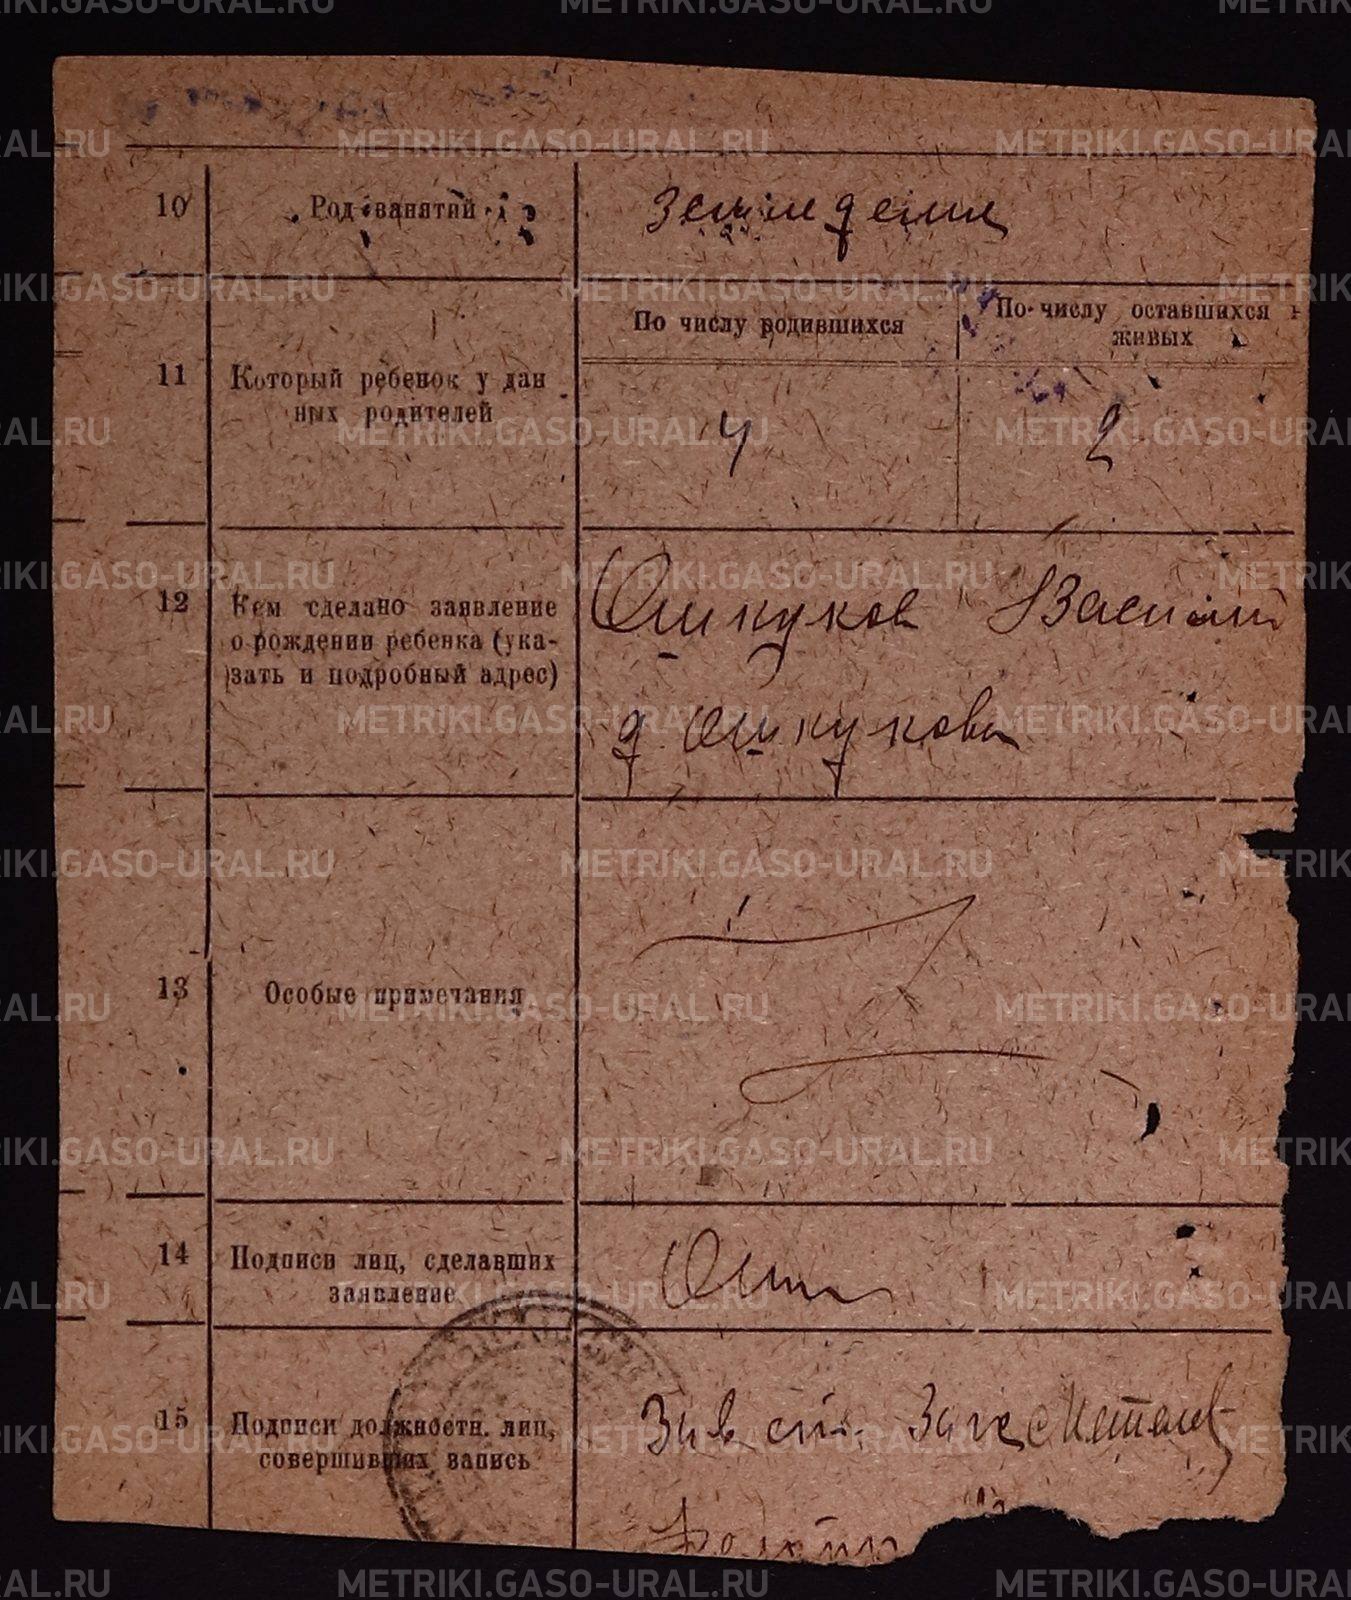 METRIKI.GASO-URAL.RU
10 Род занятий земледелие
По числу родившихся
По числу оставшихся
живых
11 Который ребенок у дан
ных родителей
4 2
12 Кем сделано заявление
о рождении ребенка (ука-
зать и подробный адрес)
Ошкуков Василий
д. Ошкукова
13 Особые примечания
14 Подписи лиц, сделавших
заявление
Ошк
15 Подписи должностн. лиц,
совершивших запись
Зав Загс